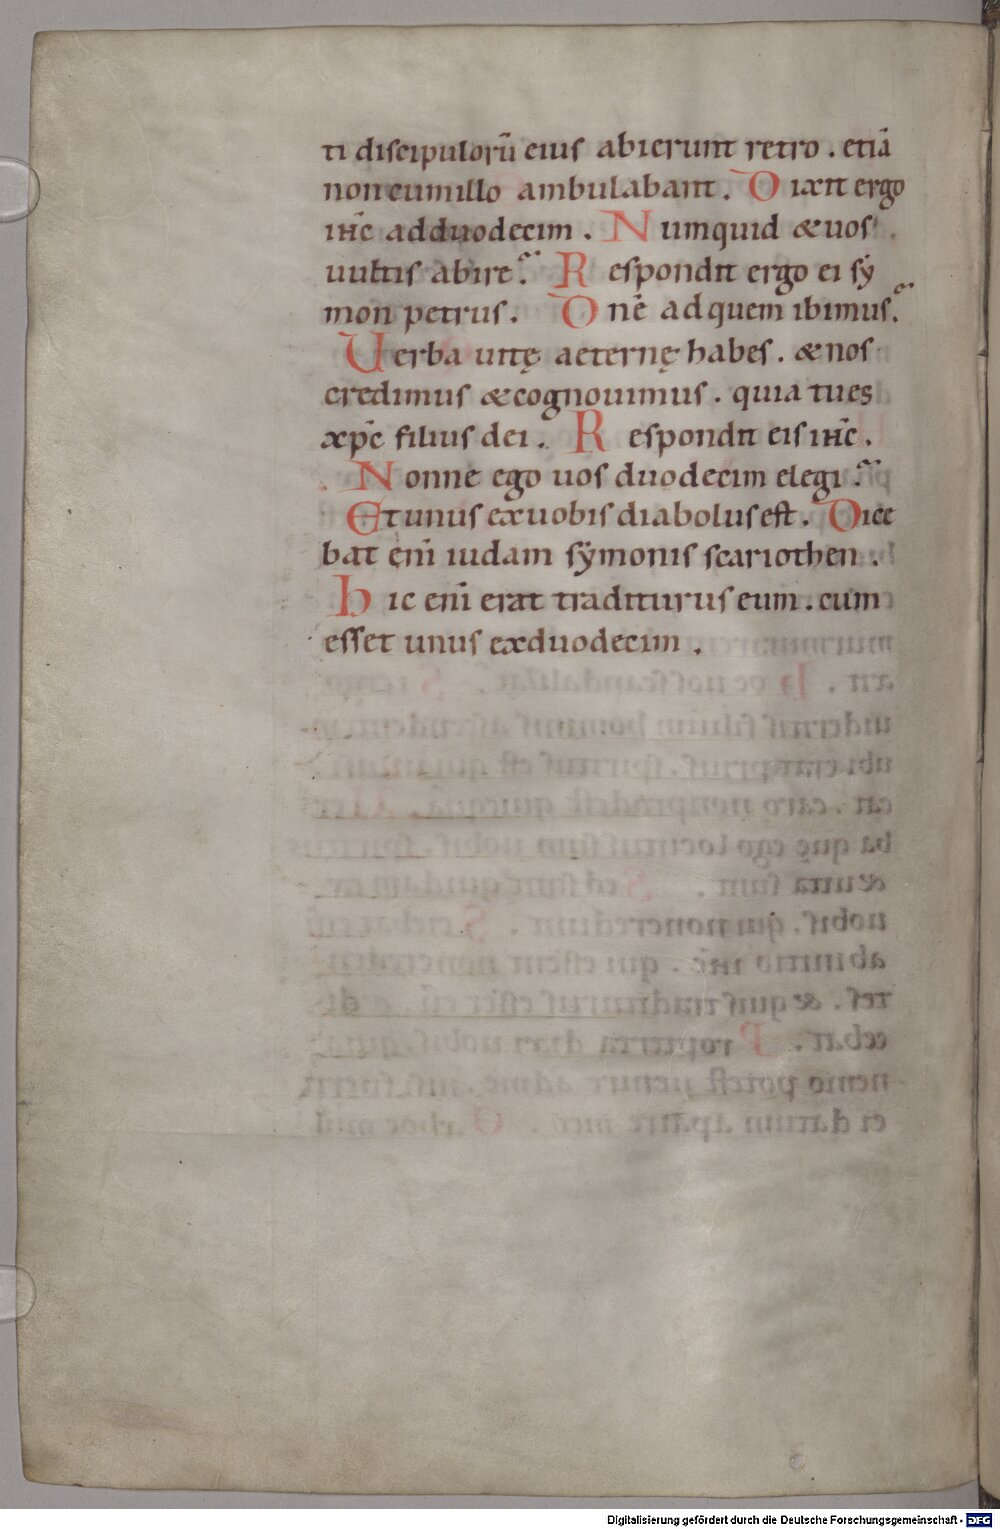 ti discipulorū eius abierunt retro . etiā
non cum illo ambulabant . Dixit ergo
ihc̄ ad duodecim . Numquid & uos
uultis abire? Respondit ergo ei sẏ
mon petrus . Dn̄e ad quem ibimus?
Uerba uitę aeternę habes . & nos
credimus & cognouimus . quia tu es
xp̄c filius dei . Respondit eis ihc̄ .
Nonne ego uos duodecim elegi?
Et unus ex uobis diabolus est . Dice
bat eni̅ iudam sẏmonis scariothen .
Hic eni̅ erat traditurus eum . cum
esset unus ex duodecim .
Digitalisierung gefördert durch die Deutsche Forschungsgemeinschaft - DFG